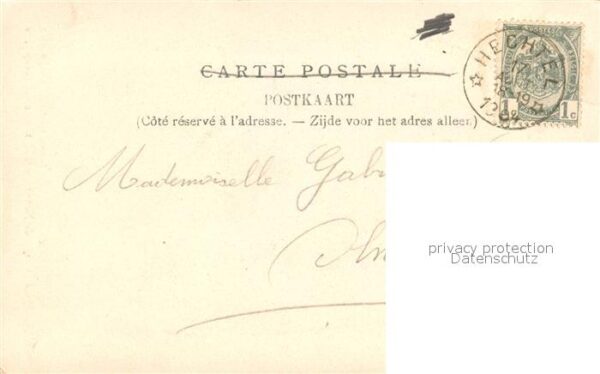 CARTE POSTALE
POSTKAART
(Côté réservé à l'adresse. — Zijde voor het adres alleen)
HECHTEL
1 1c
Mademoiselle Gab
privacy protection
Datenschutz